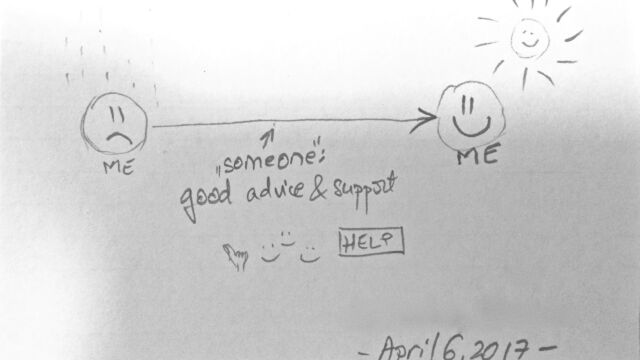 ME
ME
„someone":
good advice & support
HELP
- April 6, 2017 -